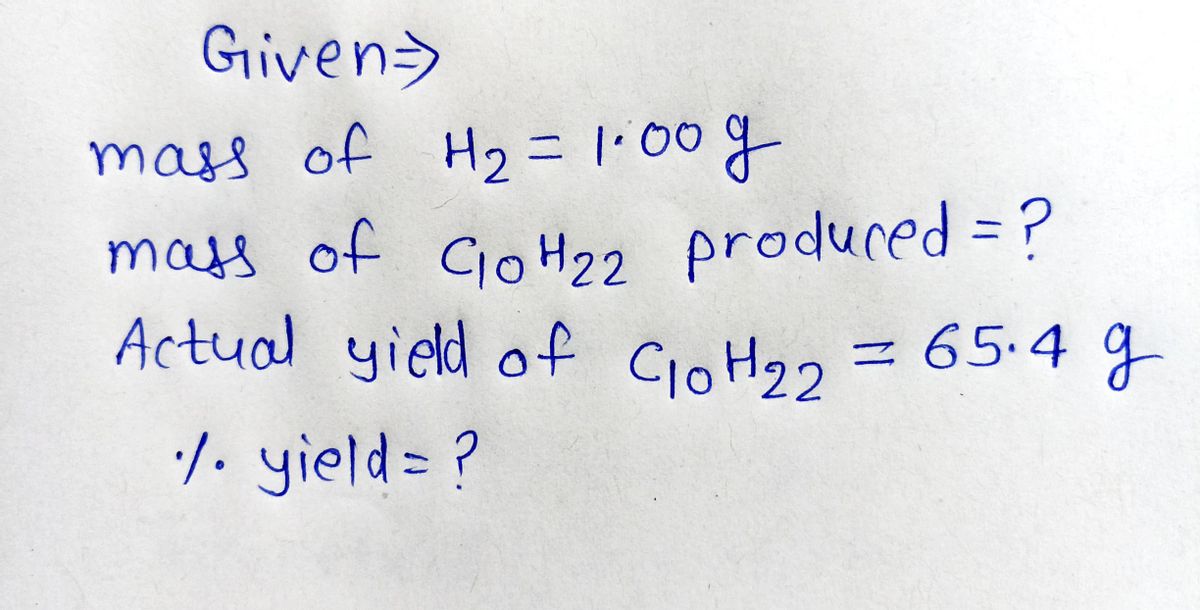 Given⇒
mass of H₂ = 1.00 g
mass of C₁₀H₂₂ produced = ?
Actual yield of C₁₀H₂₂ = 65.4 g
% yield = ?